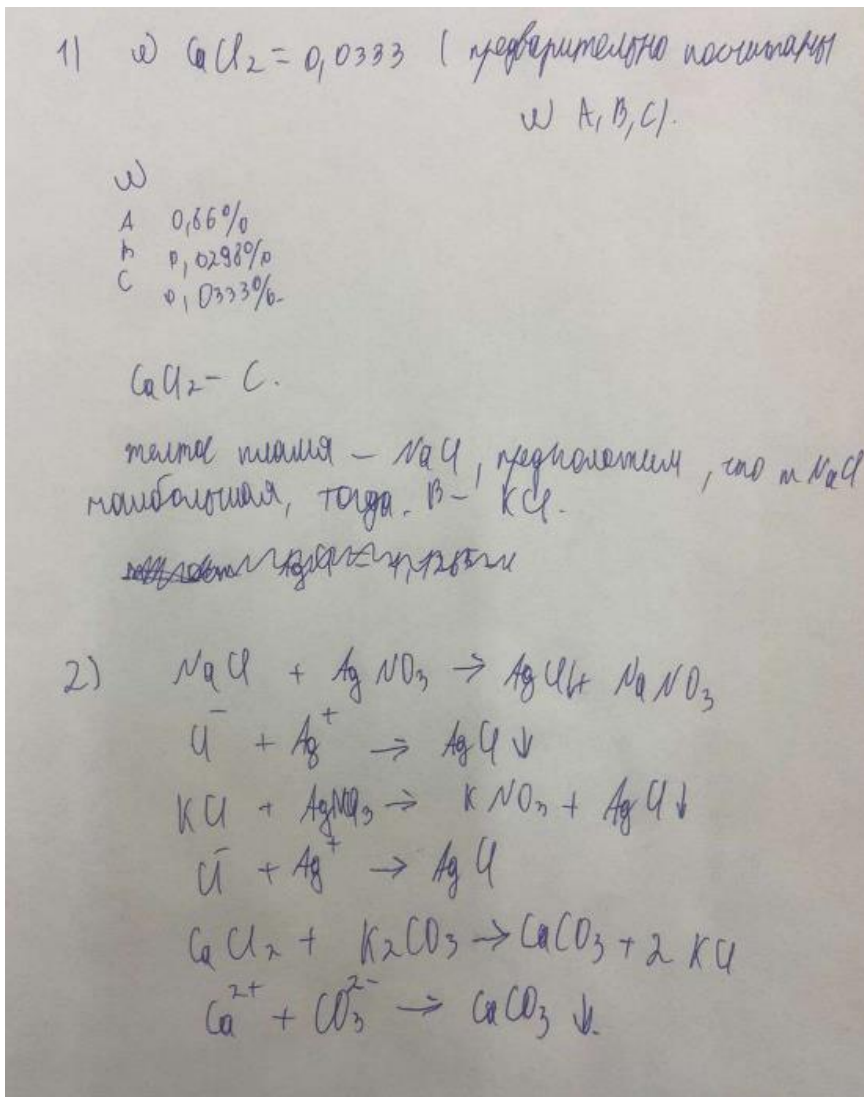 1) ω CaCl2 = 0,0333 ( предварительно посчитаны
ω A, B, C).
ω
A 0,86%
B 0,0298%
C 0,0333%
CaCl2 – C.
желтое пламя – NaCl, предположим, что m NaCl
наибольшая, тогда. B – KCl.
2) NaCl + AgNO3 → AgCl↓ + NaNO3
Cl⁻ + Ag⁺ → AgCl ↓
KCl + AgNO3 → KNO3 + AgCl ↓
Cl⁻ + Ag⁺ → AgCl
CaCl2 + K2CO3 → CaCO3 + 2 KCl
Ca²⁺ + CO3²⁻ → CaCO3 ↓.